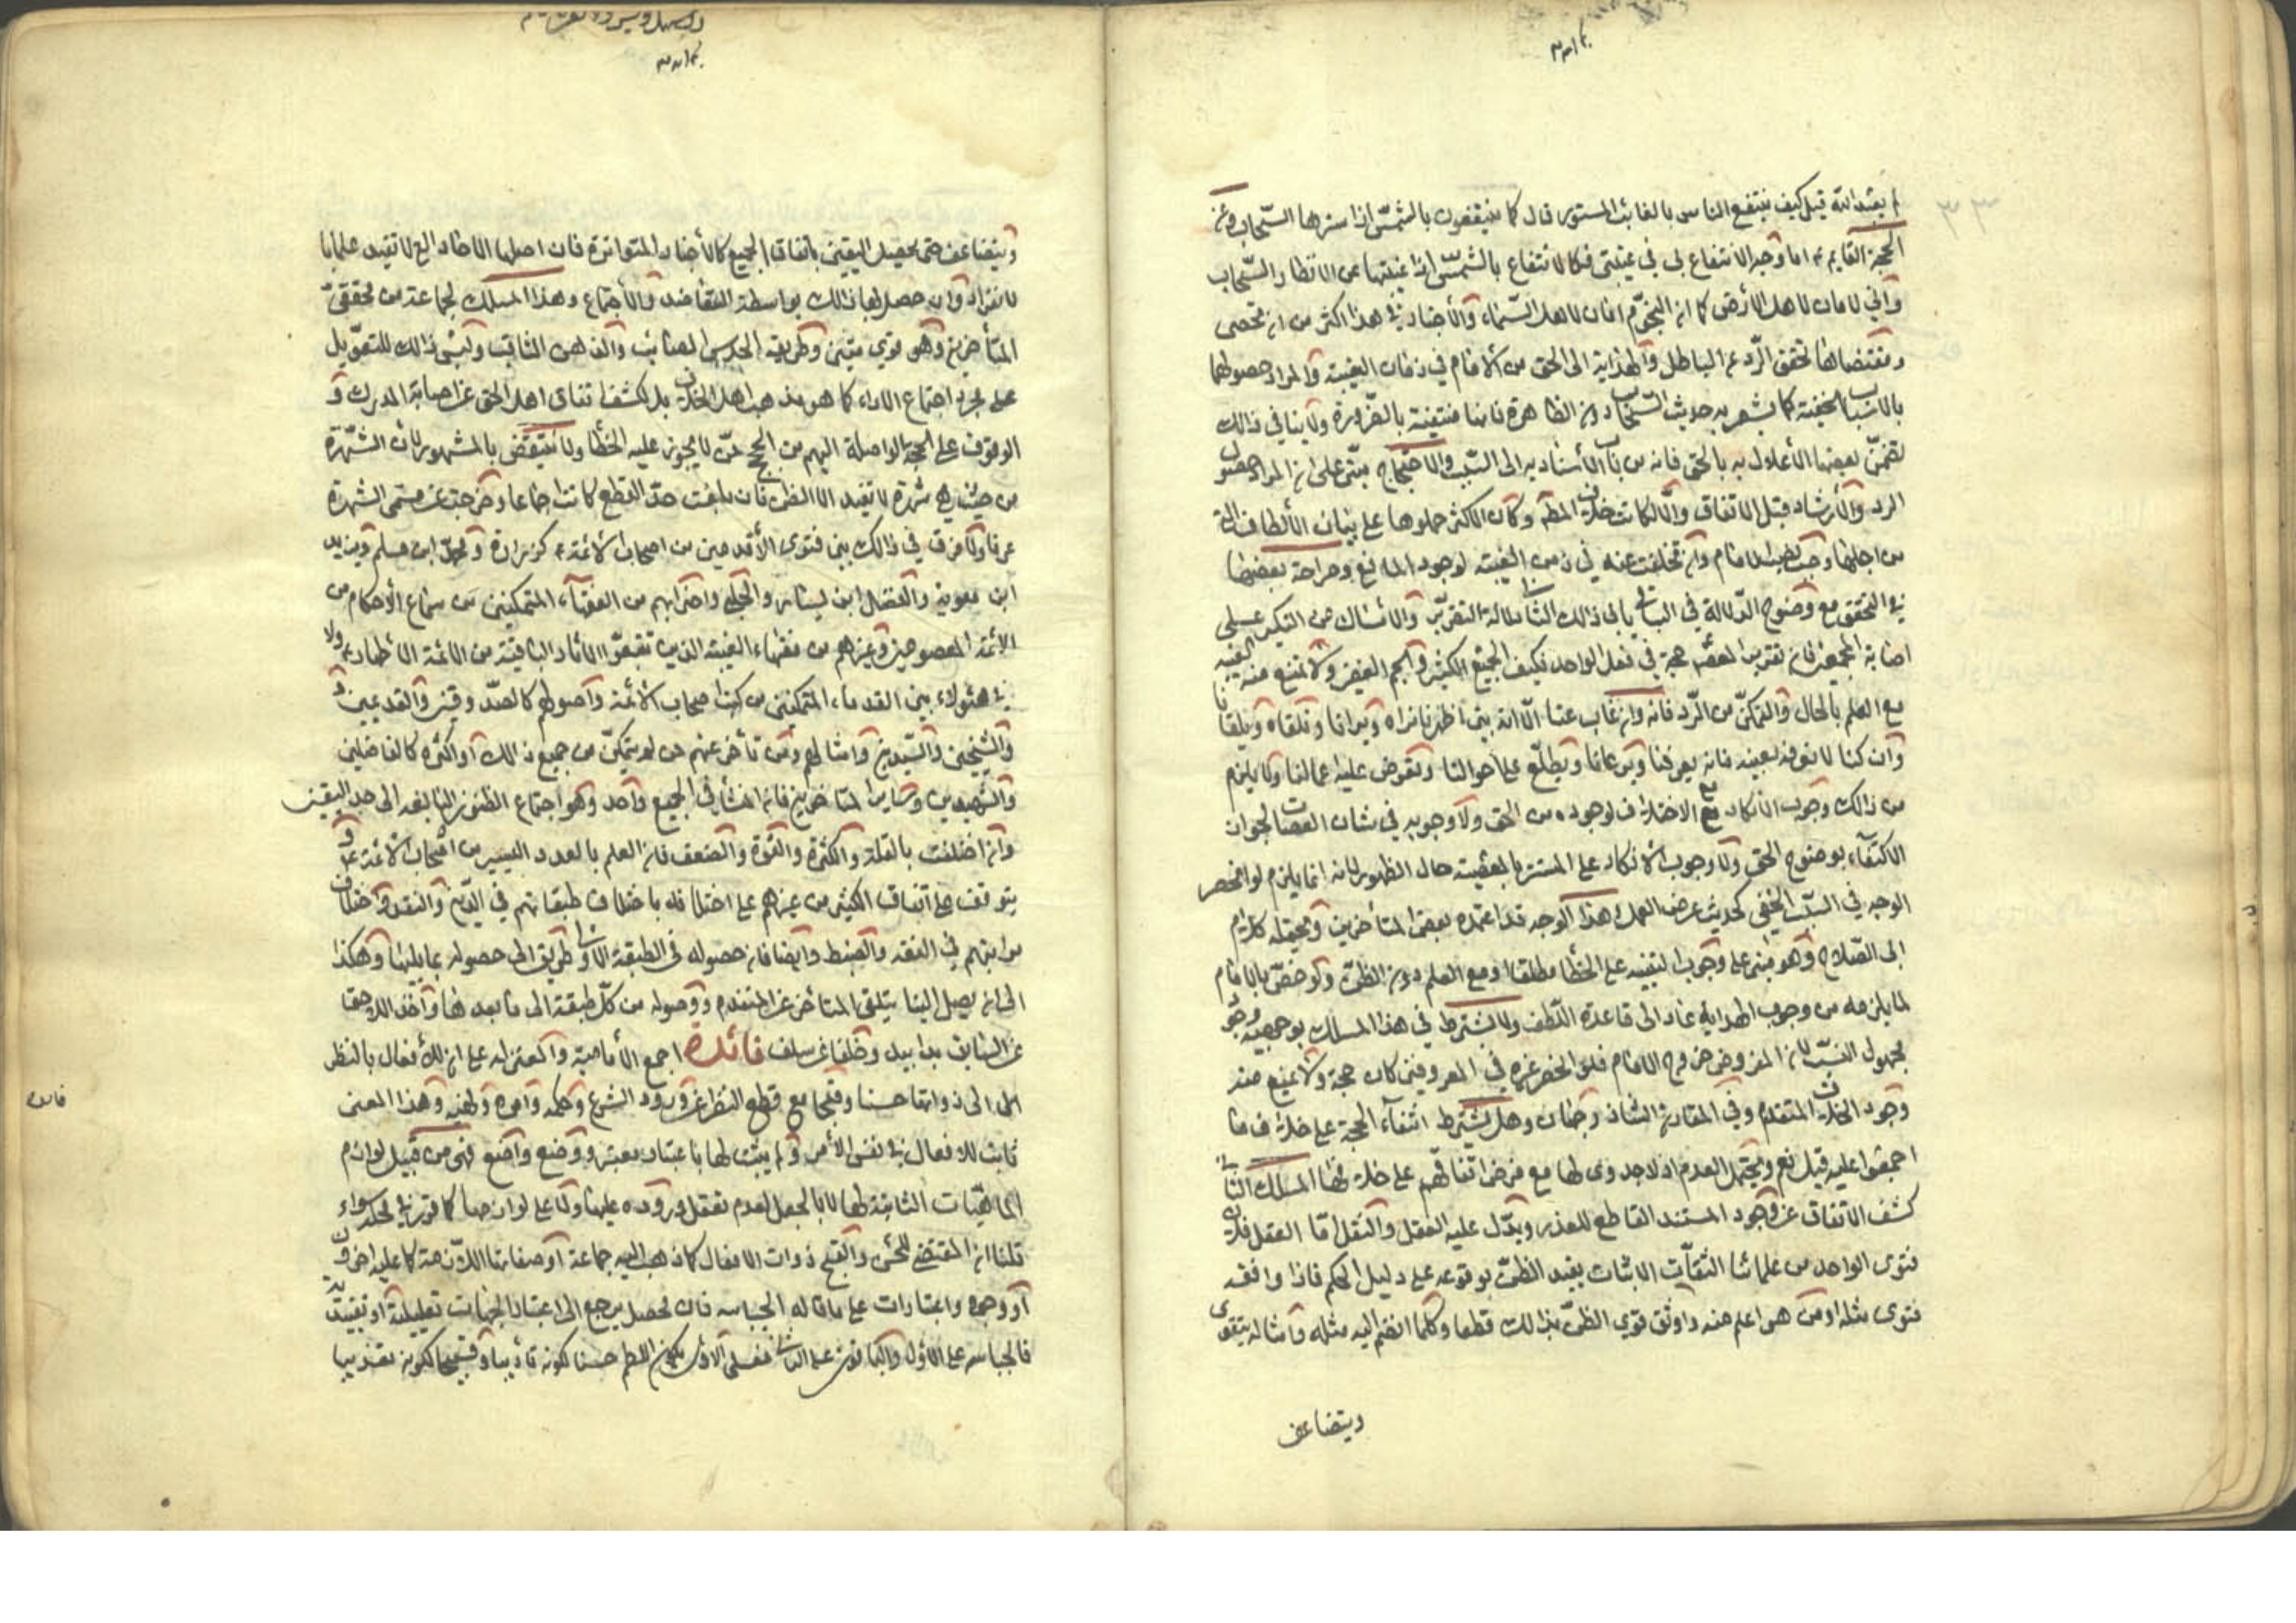 لم يعبد الله قيل كيف ينتفع الناس بالغائب المستور قال كما ينتفعون بالشمس اذا سترها السحاب وعن
الحجة القايم ع اما وجه الانتفاع بى في غيبتى فكالانتفاع بالشمس اذا غيبتها عن الانظار السحاب
وانى لامان لاهل الارض كما ان النجوم امان لاهل السماء والأخبار في هذا اكثر من ان تحصى
ومقتضاها تحقق الرد عن الباطل والهداية الى الحق من الامام في زمان الغيبة والمراد حصولها
بالاسباب الخفية كما يشعر به حديث السحاب دون الظاهرة فانها منتفية بالضرورة ولا ينافي ذالك
تضمن بعضها الأعلام به بالحق فانه من باب الأسناد به الى السبب والاحتجاج مبنى على ان المراد حصول
الرد والأرشاد قبل الاتفاق والا لكانت خلاف المظ وكأن الاكثر حملوها على بيان الألطاف التى
من اجلها وجب نصب الامام وان تخلفت عنه في زمن الغيبة لوجود المانع وصراحة بعضها
في التحقق مع وضوح الدلالة في الباقى يابى ذالك الثانى دلالة التقرير والامساك من النكير على
اصابة المجمعين فان تقرير المعصوم حجة في فعل الواحد فكيف الجمع الكثير والجم الغفير ولا تمنع منه الغيبة
مع العلم بالحال والتمكن من الرد فانه وان غاب عنا الا انه بين اظهرنا نراه ويرانا ونلقاه ويلقانا
وان كنا لا نعرفه بعينه فانه يعرفنا ويرعانا ويطلع على احوالنا وتعرض عليه اعمالنا ولا يلزم
من ذالك وجوب الانكار مع الاختلاف لوجوده من الحق ولا وجوبه في شان العصات لجواز
الاكتفاء بوضوح الحق ولا وجوب الانكار على المستتر بالمعصية حال الظهور لانه انما يلزم لو انحصر
الوجه في السبب الخفى كحديث عرض العمل وهذا الوجه قد اعتمده بعض المتأخرين ويحتمله كلام
ابى الصلاح وهو مبنى على وجوب التنبيه على الخطأ مطلقا او مع العلم دون الظن ولو خص بالامام
لما يلزمه من وجوب الهداية عاد الى قاعدة اللطف ولا يشترط في هذا المسلك بوجهيه وجود
مجهول النسب لان المفروض خروج الامام فلو انحصر غيره في المعروفين كان حجة ولا يمنع منه
وجود الخلاف المتقدم وفي المقارن الشاذ وجهان وهل يشترط انتفاء الحجة على خلاف ما
اجمعوا عليه قيل نعم ويحتمل العدم اذ لا جدوى لها مع فرض اتفاقهم على خلافها المسلك الثالث
كشف الاتفاق عن وجود المستند القاطع للعذر ويدل عليه العقل والنقل اما العقل فلان
فتوى الواحد من علمائنا الثقات الاثبات يفيد الظن بوقوعه على دليل الحكم فاذا وافقه
فتوى مثله او من هو اعلم منه واوثق قوي الظن بذالك قطعا وكلما انضم اليه مثله وامثاله يتقوى
ويتضاعف
ويتضاعف حتى يحصل اليقين باتفاق الجميع كالأخبار المتواترة فان اصلها الاحاد التى لا تفيد علما با
لانفراد وان حصل لها ذالك بواسطة التعاضد والأجتماع وهذا المسلك لجماعة من محققى
المتأخرين وهو قوي متين وطريقه الحدس الصائب والذهن الثاقب وليس ذالك للتعويل
على مجرد اجتماع الاراء كما هو مذهب اهل الخلاف بل لكشف اتفاق اهل الحق عن اصابة المدرك و
الوقوف على الحجة الواصلة اليهم من الحجج ممن لا يجوز عليه الخطأ ولا ينتقض بالمشهور لأن الشهرة
من حيث هي شهرة لا تفيد الا الظن فان بلغت حد القطع كانت اجماعا وخرجت عن مسمى الشهرة
عرفا ولا فرق في ذالك بين فتوى الأقدمين من اصحاب الائمة ع كزرارة ومحمد ابن مسلم وبريد
ابن معوية والفضل ابن يسار والحلبي واضرابهم من الفقهاء المتمكنين من سماع الأحكام من
الائمة المعصومين وغيرهم من فقهاء الغيبة الذين تتبعوا الاثار الباقية من الائمة الأطهار ع ولا
في هؤلاء بين القدماء المتمكنين من كتب اصحاب الائمة واصولهم كالصدوقين والقديمين و
والشيخين والسيدين وامثالهم ومن تأخر عنهم ممن لم يتمكن من جميع ذالك او اكثره كالفاضلين
والشهيدين وساير المتاخرين فان المنشأ في الجميع واحد وهو اجتماع الظنون البالغة الى حد اليقين
وان اختلفت بالقلة والكثرة والقوة والضعف فان العلم بالعدد اليسير من اصحاب الائمة ع و
يتوقف على اتفاق الكثير من غيرهم على اختلافه باختلاف طبقاتهم في الدين والنقد واختلاف
مراتبهم في الفقه والضبط وايضا فان حصوله في الطبقة الاولى طريق الى حصوله بما يليها وهكذا
الى ان يصل الينا بتلقى المتاخر عن المتقدم ووصوله من كل طبقة الى ما بعدها واخذ اللاحق
عن السابق يدا بيد وخلفا عن سلف فائدة اجمع الأمامية والمعتزلة على ان للأفعال بالنظر
الى ذواتها حسنا وقبحا مع قطع النظر عن ورود الشرع وحكمه وامره ونهيه وهذا المعنى
ثابت للافعال في نفس الأمر ولم يثبت لها باعتبار معتبر ووضع واضع فهى من قبيل لوازم
الماهيات الثابتة لها لا بالجعل لعدم تعقل وروده عليها ولا على لوازمها كما قرر في محله سواء
قلنا ان المقتضى للحسن والقبح ذوات الافعال كما ذهب اليه جماعة او صفاتها اللازمة كما عليه اخرون
او وجوه واعتبارات على ما قاله الجبائيه فان محصله يرجع الى اعتبار الجهات تعليلية او تقييدية
فالجبائيه على الأول والباقون على الثانى فعلى الاول يكون اللطم حسنا لكونه تأديبا وقبيحا لكونه تعذيبا
فائده